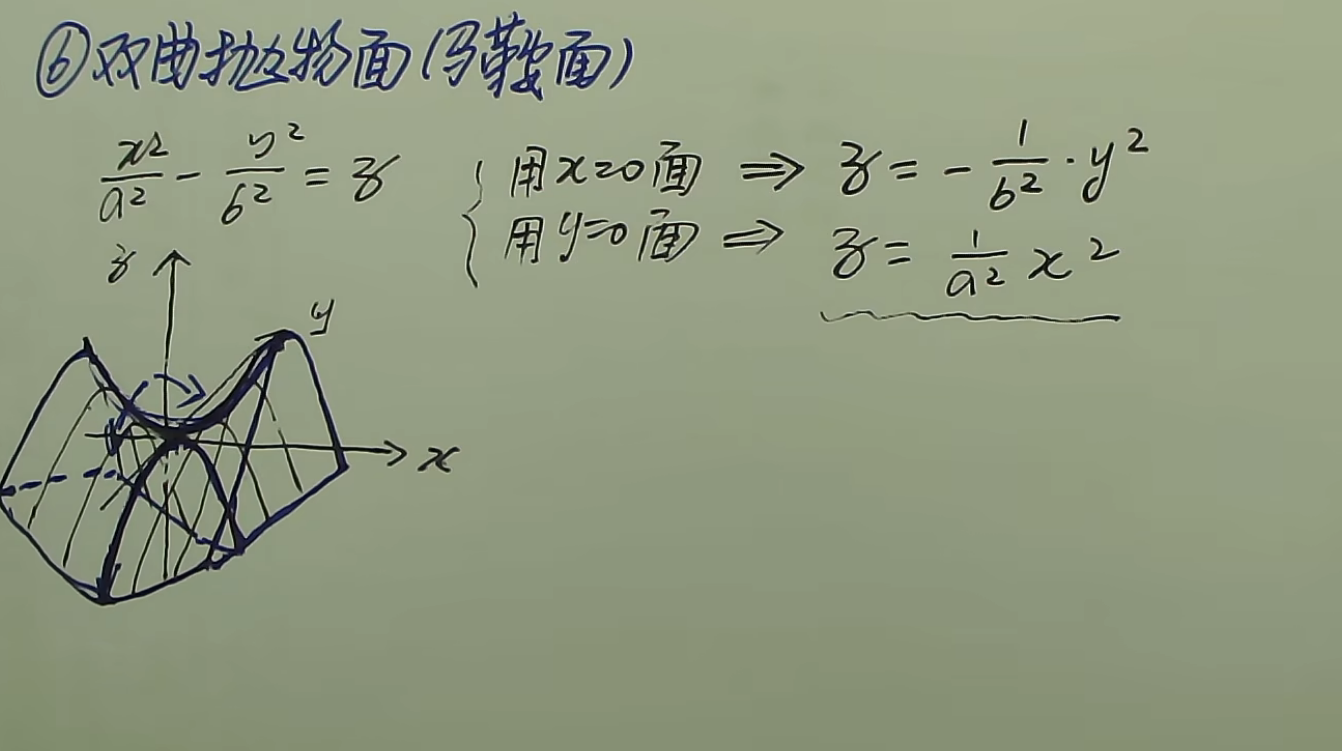 ⑥双曲抛物面(马鞍面)
x²/a² - y²/b² = z
{ 用x=0面 ⇒ z = - 1/b² · y²
用y=0面 ⇒ z = 1/a² x²
z
y
x